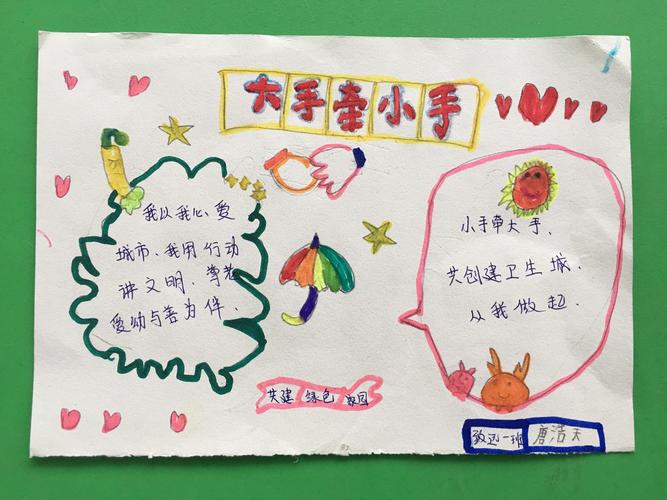 大手牵小手
我以我心、爱
城市、我用行动
讲文明、尊老
爱幼与善为伴.
小手牵大手、
共创建卫生城、
从我做起.
共建 绿色 家园
致远一班 唐洁天